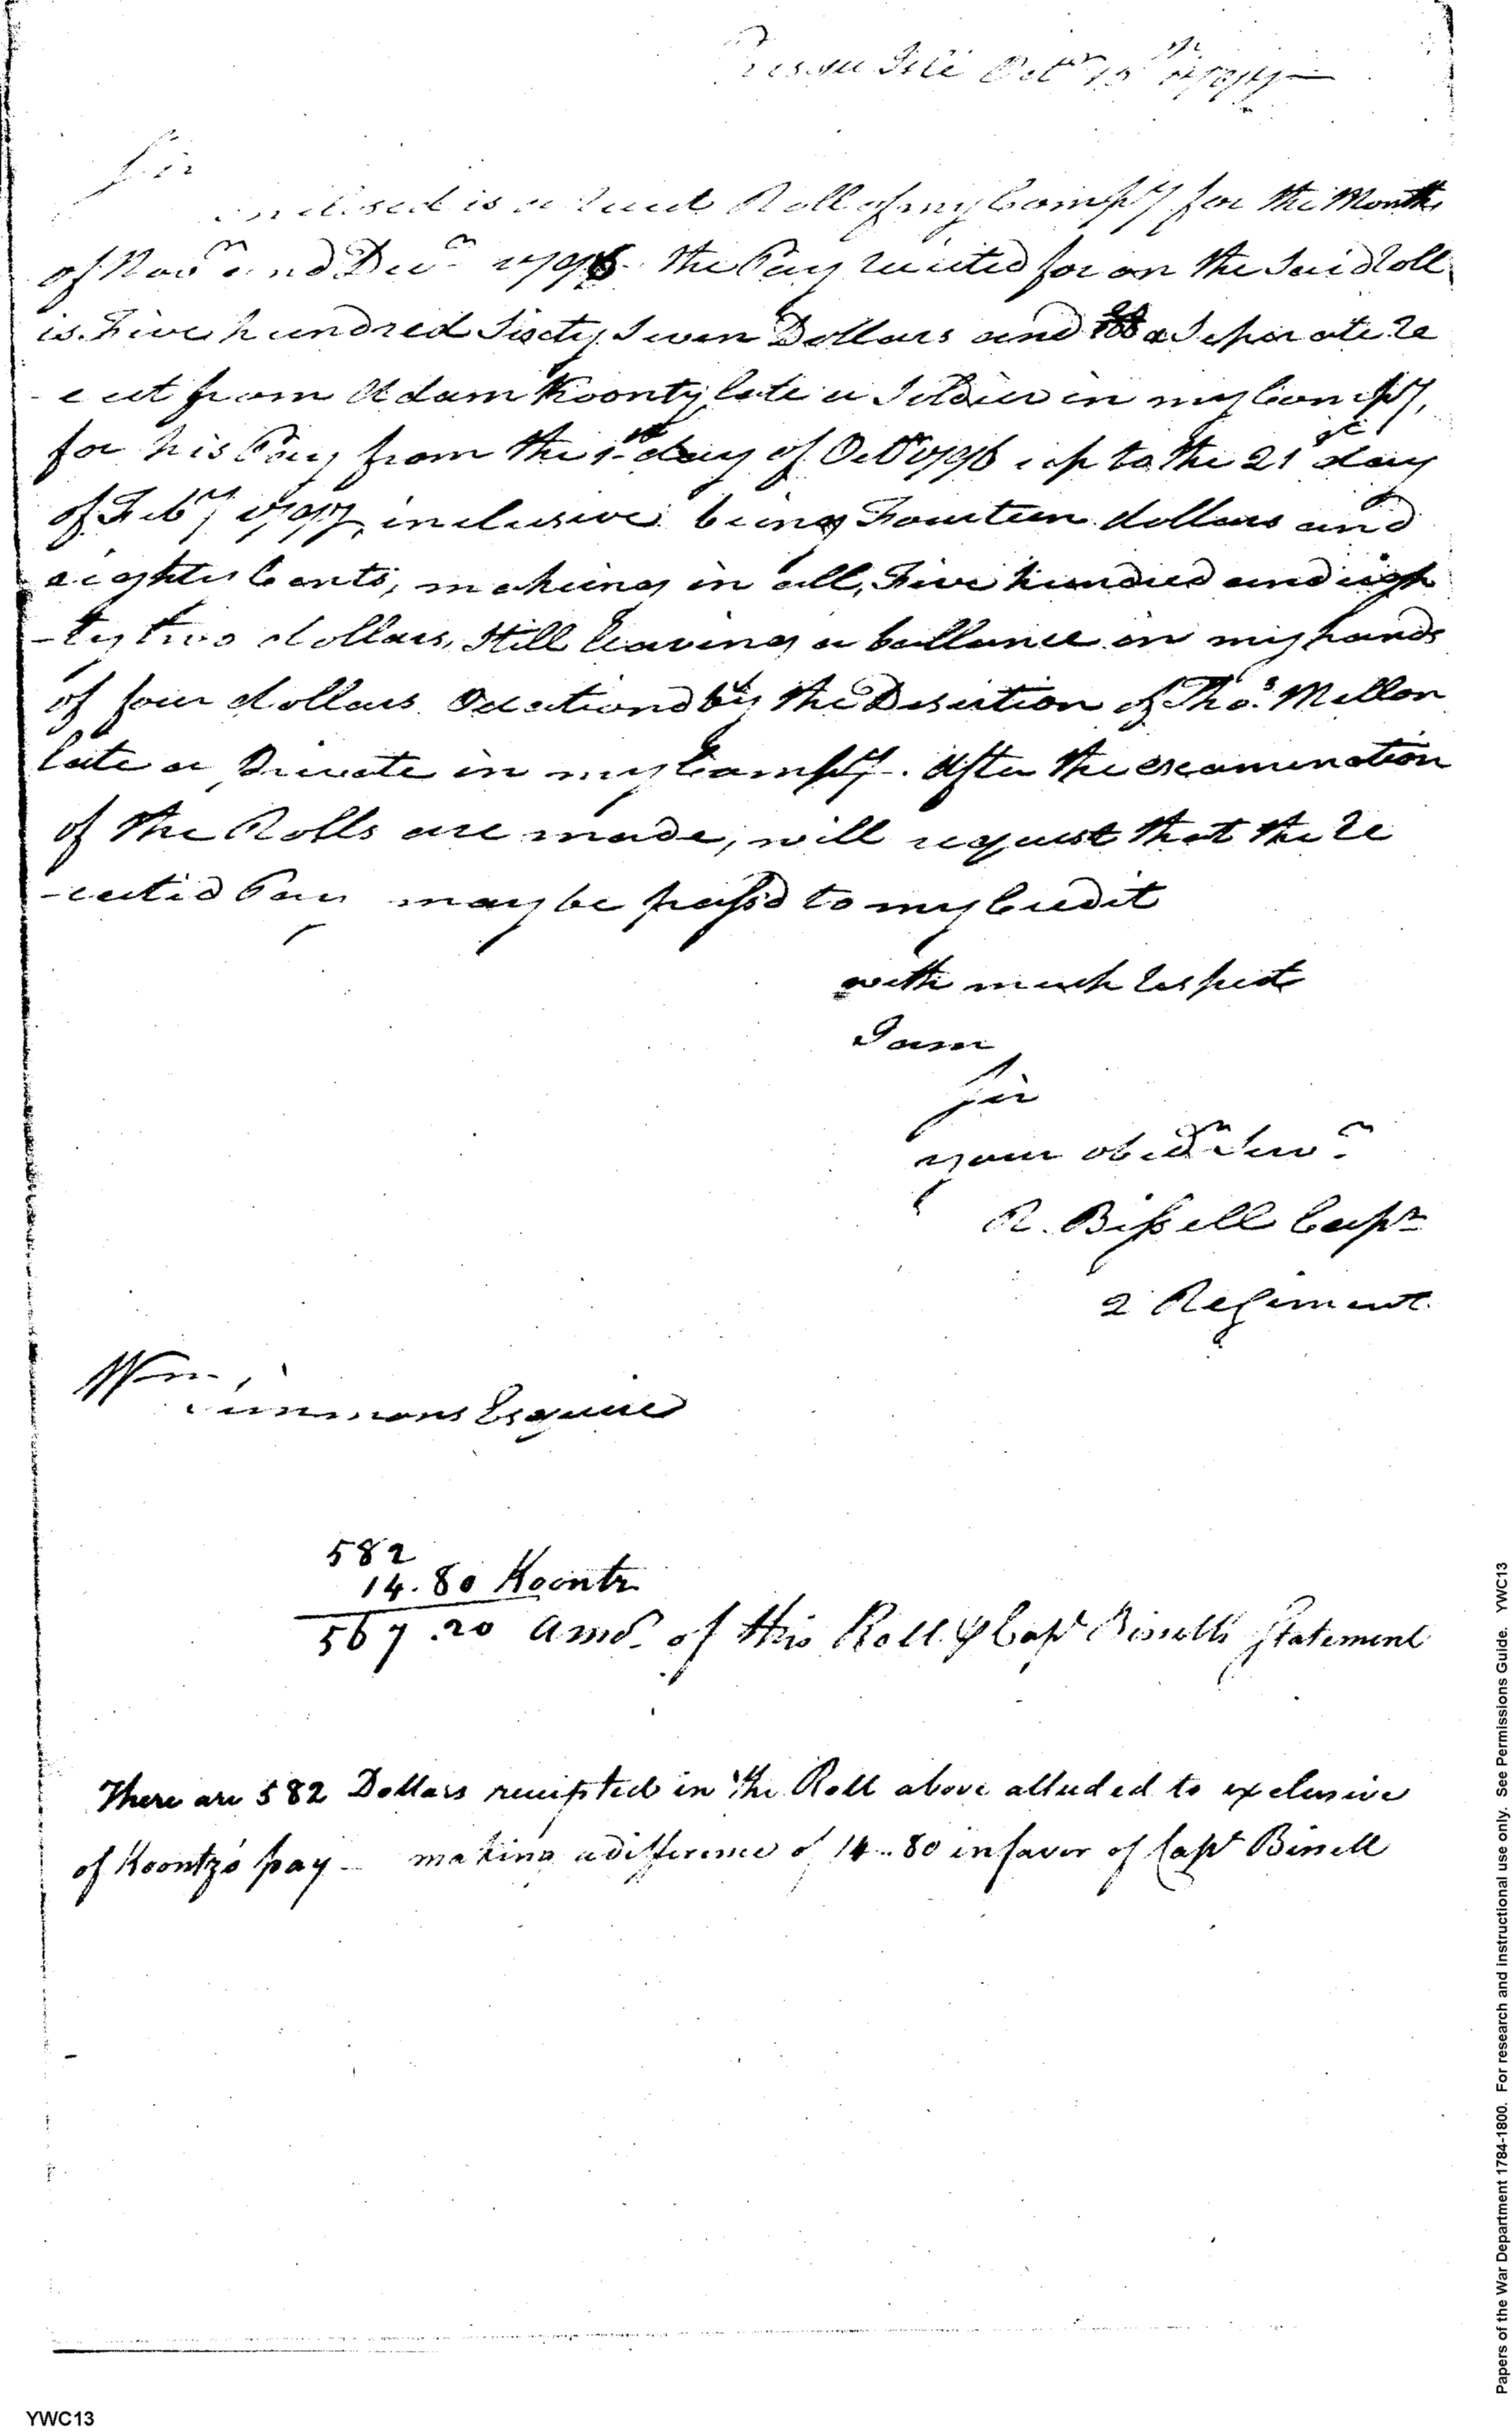 Presqu Isle Octr 15th 1797
Sir
inclosed is a Recd Roll of my Compy for the Months
of Novr and Decr 1796. the Pay receited for on the Said Roll
is Five hundred Sixty Seven Dollars and a Seperate Re
-ceit from Adam Koontz late a Soldier in my Compy,
for his Pay from the 1st day of Octr 1796 up to the 21st day
of Feby 1797, inclusive being Fourteen dollars and
eighty Cents, makeing in all, Five hundred and eigh
-ty two dollars, Still leaving a ballance in my hands
of four dollars Ocationd by the Desertion of Thos. Mellon
late a Private in my Compy. After the examenation
of the Rolls are made, will request that the Re
-ceited Pay may be passd to my Credit
with much Respect
I am
Sir
your obedt Servt
R. Bissell Capt
2 Regiment
Wm
Simmons Esquire
582
14.80 Koontz
567.20 Amot. of this Roll ⅌ Capt Bissells Statement
There are 582 Dollars receipted in the Roll above alluded to exclusive
of Koontz's pay - making a difference of 14..80 in favor of Capt Bissell
Papers of the War Department 1784-1800. For research and instructional use only. See Permissions Guide. YWC13
YWC13